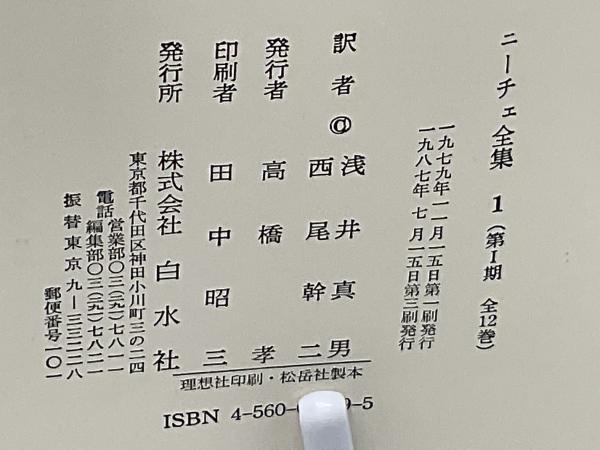 ニーチェ全集 1(第Ⅰ期 全12巻)
一九七九年一一月一五日第一刷発行
一九八七年 七 月一五日第三刷発行
訳者 @ 浅井真男
西尾幹二
発行者 高橋孝
印刷者 田中昭三
発行所 株式会社 白水社
東京都千代田区神田小川町三の二四
電話 営業部〇三(二九一)七八一一
編集部〇三(二九一)七八二一
振替東京九—三三二二八
郵便番号一〇一
理想社印刷・松岳社製本
ISBN 4-560-
9-5